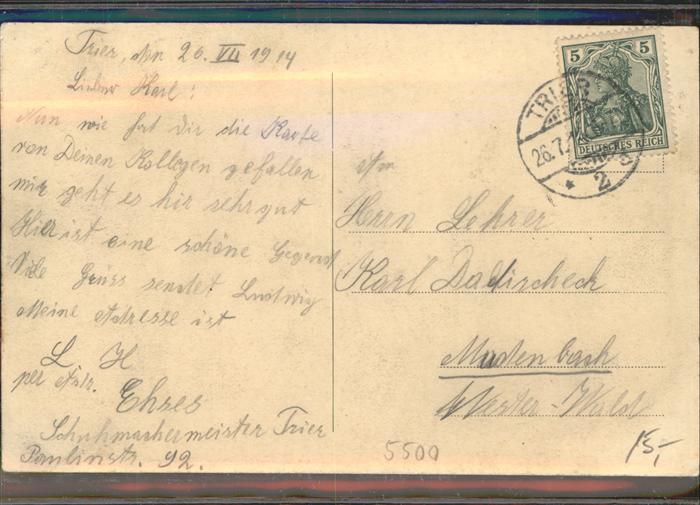 Trier, den 26. VII 1914
Lieber Karl!
Nun wie hat dir die Karte
von Deinen Kollegen gefallen
mir geht es hir sehr gut
Hier ist eine schöne Gegend
Viele Grüss sendet Ludwig
Meine Adresse ist
L H
per Adr.
Ehses
Schuhmachermeister Trier
Paulinstr. 92.
5 5
DEUTSCHES REICH
TRIER
26.7.
* 2
An
Herrn Lehrer
Karl Dalischeck
Wester-Wald
5500
15,-